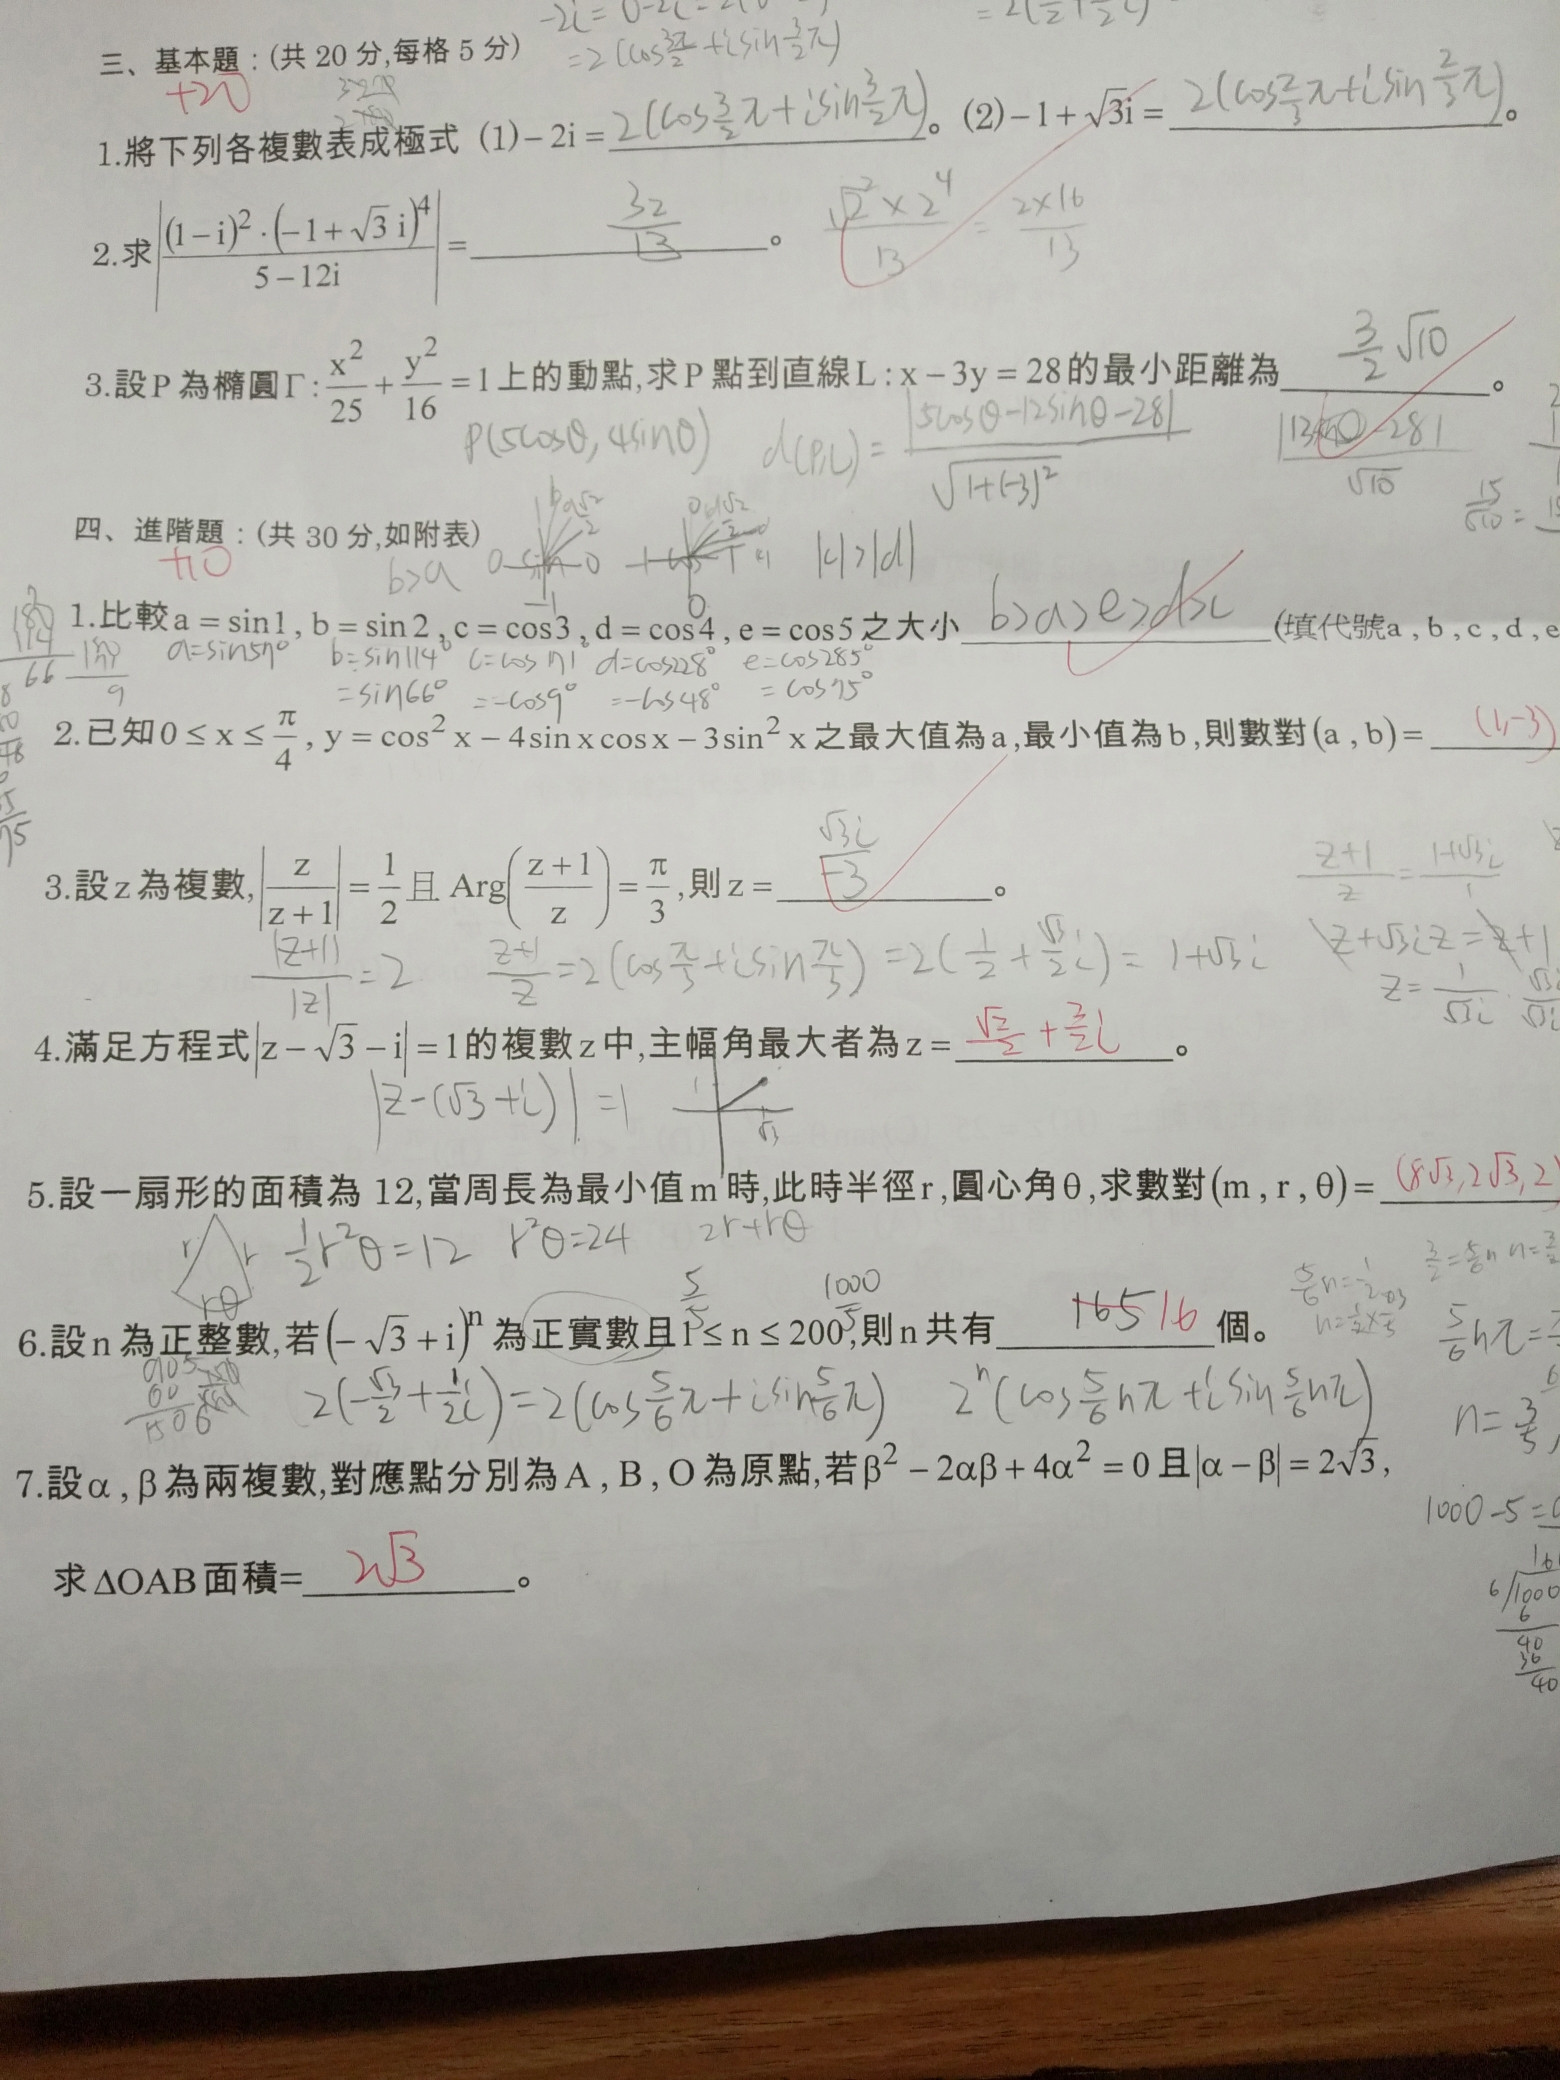 -2i = 0-2i =
= 2(cos3/2π + i sin3/2π)
三、基本題：(共 20 分,每格 5 分)
+20
1.將下列各複數表成極式 (1)−2i = 2(cos3/2π + i sin3/2π)。 (2)−1+√3i = 2(cos2/3π + i sin2/3π)。
2.求|(1−i)²·(−1+√3 i)⁴ / 5−12i| = 32/13。 √2² × 2⁴ / 13 = 2×16/13
3.設P為橢圓Γ: x²/25 + y²/16 = 1上的動點,求P點到直線L : x − 3y = 28的最小距離為 3/2 √10。
P(5cosθ, 4sinθ) d(P,L) = |5cosθ-12sinθ-28| / √1+(-3)²
√10
15/√10 =
四、進階題：(共 30 分,如附表)
+10
b>a |c|>|d|
1.比較a = sin1 , b = sin2 , c = cos3 , d = cos4 , e = cos5之大小 b>a>e>d>c (填代號a , b , c , d , e
a=sin57° b=sin114° c=cos171° d=cos228° e=cos285°
=sin66° =-cos9° =-cos48° =cos75°
2.已知0 ≤ x ≤ π/4 , y = cos² x − 4sin x cos x − 3sin² x之最大值為a ,最小值為b ,則數對(a , b) = (1,-3)
3.設z為複數, |z / z+1| = 1/2 且 Arg(z+1 / z) = π/3 ,則z = √3i / -3。
z+1 / z = 1+√3i / 1
|z+1| / |z| = 2 z+1 / z = 2(cosπ/3 + i sinπ/3) = 2(1/2 + √3/2 i) = 1+√3i
z+√3iz = z+1
z = 1/√3i · √3i/√3i
4.滿足方程式|z − √3 − i| = 1的複數z中,主幅角最大者為z = √3/2 + 3/2 i。
|z-(√3+i)| = 1
1 √3
5.設一扇形的面積為 12,當周長為最小值m時,此時半徑r ,圓心角θ ,求數對(m , r , θ) = (8√3, 2√3, 2)
r r rθ 1/2 r²θ = 12 r²θ = 24 2r+rθ
5/5 1000/5
6.設n為正整數,若(−√3 + i)ⁿ 為正實數且1 ≤ n ≤ 200,則n共有 165 16 個。
2(-√3/2 + 1/2 i) = 2(cos5/6π + i sin5/6π) 2ⁿ(cos5/6nπ + i sin5/6nπ)
5/6 nπ =
7.設α , β為兩複數,對應點分別為A , B , O為原點,若β² − 2αβ + 4α² = 0且|α − β| = 2√3 ,
1000-5 =
求ΔOAB面積= 2√3。
6 1000
6
40
36
40